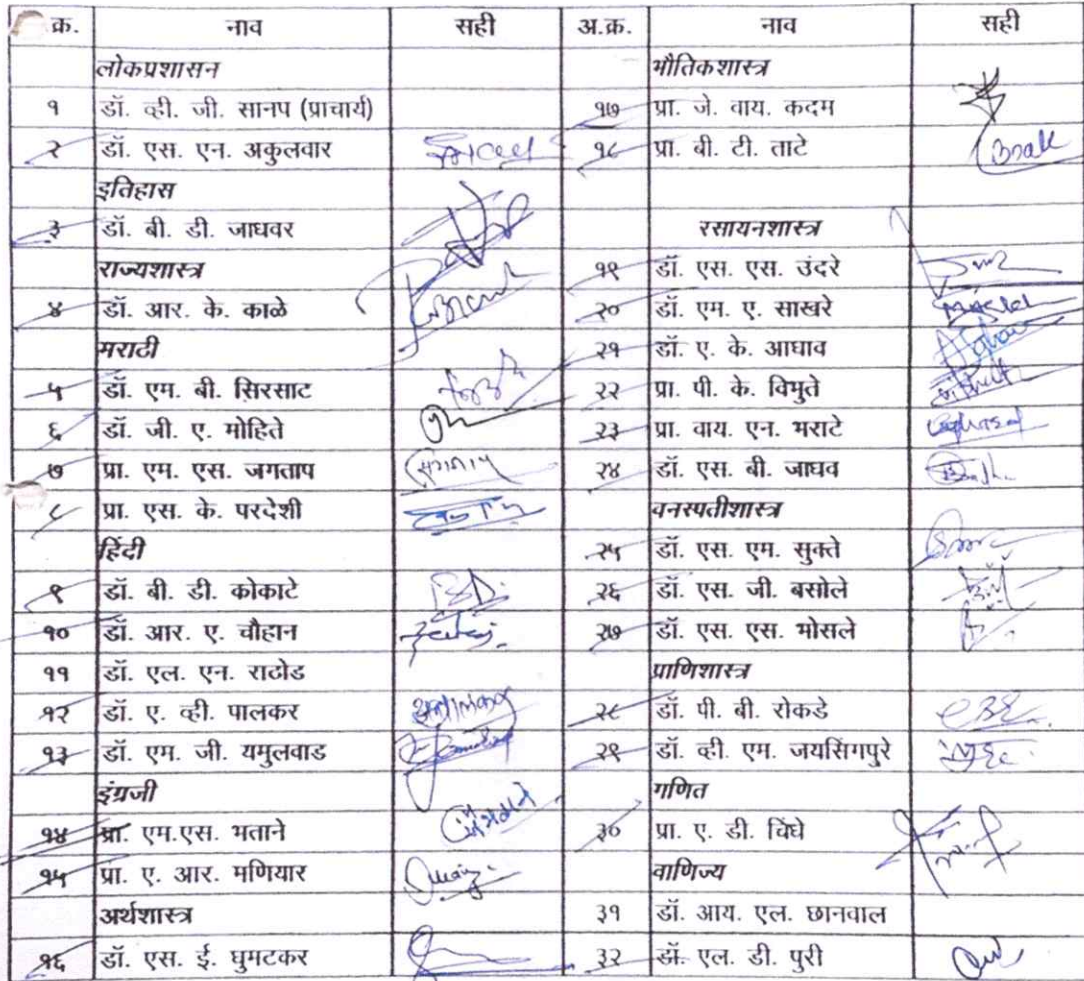 क्र. नाव सही अ.क्र. नाव सही
लोकप्रशासन भौतिकशास्त्र
१ डॉ. व्ही. जी. सानप (प्राचार्य) १७ प्रा. जे. वाय. कदम
२ डॉ. एस. एन. अकुलवार १८ प्रा. बी. टी. ताटे
इतिहास
३ डॉ. बी. डी. जाधवर रसायनशास्त्र
राज्यशास्त्र १९ डॉ. एस. एस. उंदरे
४ डॉ. आर. के. काळे २० डॉ. एम. ए. साखरे
मराठी २१ डॉ. ए. के. आघाव
५ डॉ. एम. बी. सिरसाट २२ प्रा. पी. के. विभुते
६ डॉ. जी. ए. मोहिते २३ प्रा. वाय. एन. भराटे
७ प्रा. एम. एस. जगताप २४ डॉ. एस. बी. जाधव
८ प्रा. एस. के. परदेशी वनस्पतीशास्त्र
हिंदी २५ डॉ. एस. एम. सुक्ते
९ डॉ. बी. डी. कोकाटे २६ डॉ. एस. जी. बसोले
१० डॉ. आर. ए. चौहान २७ डॉ. एस. एस. भोसले
११ डॉ. एल. एन. राठोड प्राणिशास्त्र
१२ डॉ. ए. व्ही. पालकर २८ डॉ. पी. बी. रोकडे
१३ डॉ. एम. जी. यमुलवाड २९ डॉ. व्ही एम. जयसिंगपुरे
इंग्रजी गणित
१४ प्रा. एम.एस. भताने ३० प्रा. ए. डी. चिंधे
१५ प्रा. ए. आर. मणियार वाणिज्य
अर्थशास्त्र ३१ डॉ. आय. एल. छानवाल
१६ डॉ. एस. ई. घुमटकर ३२ डॉ. एल. डी. पुरी